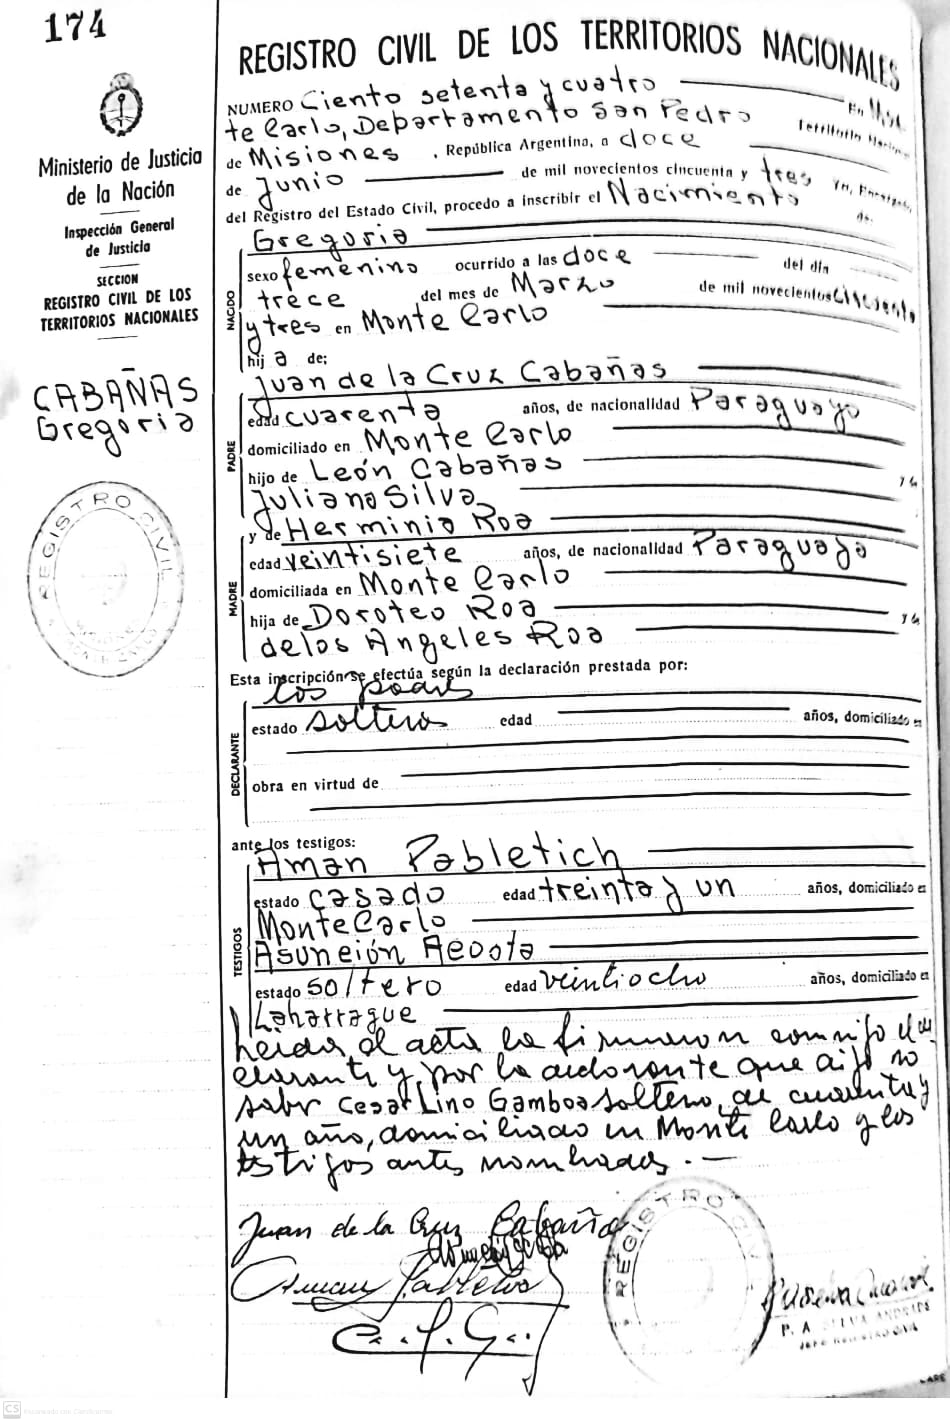 174
Ministerio de Justicia
de la Nación
Inspección General
de Justicia
SECCION
REGISTRO CIVIL DE LOS
TERRITORIOS NACIONALES
CABAÑAS
Gregoria
REGISTRO CIVIL
REGISTRO CIVIL DE LOS TERRITORIOS NACIONALES
NUMERO Ciento setenta y cuatro En Mon
te Carlo, Departamento San Pedro
de Misiones, República Argentina, a doce
de Junio de mil novecientos cincuenta y tres
del Registro del Estado Civil, procedo a inscribir el Nacimiento
de:
NACIDO
Gregoria
sexo femenino ocurrido a las doce del día
trece del mes de Marzo de mil novecientos cincuenta
y tres en Monte Carlo
hij a de:
PADRE
Juan de la Cruz Cabañas
edad cuarenta años, de nacionalidad Paraguayo
domiciliado en Monte Carlo
hijo de León Cabañas y de
Juliana Silva
MADRE
y de Herminia Roa
edad veintisiete años, de nacionalidad Paraguaya
domiciliada en Monte Carlo
hija de Doroteo Roa y de
de los Angeles Roa
Esta inscripción se efectúa según la declaración prestada por:
los padres
DECLARANTE
estado solteros edad años, domiciliado en
obra en virtud de
ante los testigos:
TESTIGOS
Aman Pabletich
estado casado edad treinta y un años, domiciliado en
Monte Carlo
Asunción Acosta
estado soltero edad veintiocho años, domiciliado en
Laharrague
el acta la firmaron conmigo el de
clarante y, por la declarante que dijo no
saber Cesar Lino Gamboa soltero, de cuarenta y
un año, domiciliado en Monte Carlo y los
testigos antes nombrados.—
Juan de la Cruz Cabañas
REGISTRO CIVIL
P. A. SILVA ANDRADE
JEFE REGISTRO CIVIL
CS